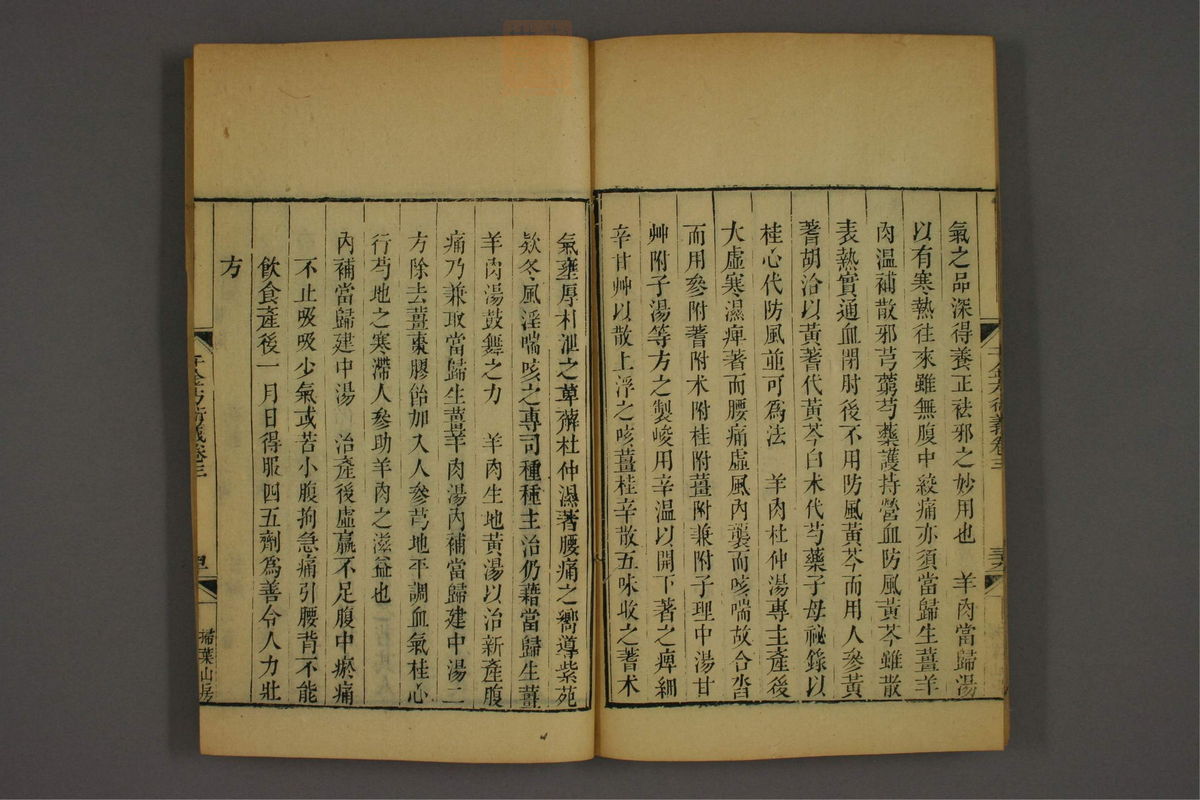 氣之品深得養正祛邪之妙用也　羊肉當歸湯
以有寒熱往來雖無腹中絞痛亦須當歸生薑羊
肉溫補散邪芎藭芍藥護持營血防風黃芩雖散
表熱實通血閉肘後不用防風黃芩而用人參黃
蓍胡洽以黃蓍代黃芩白朮代芍藥子母祕錄以
桂心代防風並可為法　羊肉杜仲湯專主產後
大虛寒濕痺著而腰痛虛風內襲而咳喘故合沓
而用參附蓍附朮附桂附薑附兼附子理中湯甘
艸附子湯等方之製峻用辛溫以開下著之痺細
辛甘艸以散上浮之咳薑桂辛散五味收之蓍朮
氣壅厚朴泄之萆薢杜仲濕著腰痛之嚮導紫菀
欵冬風淫喘咳之專司種種主治仍藉當歸生薑
羊肉湯鼓舞之力　羊肉生地黃湯以治新產腹
痛乃兼取當歸生薑羊肉湯內補當歸建中湯二
方除去薑棗膠飴加入人參芎地平調血氣桂心
行芍地之寒滯人參助羊肉之滋益也
內補當歸建中湯　治產後虛羸不足腹中瘀痛
不止吸吸少氣或苦小腹拘急痛引腰背不能
飲食產後一月日得服四五劑為善令人力壯
方
千金方衍義卷三
掃葉山房